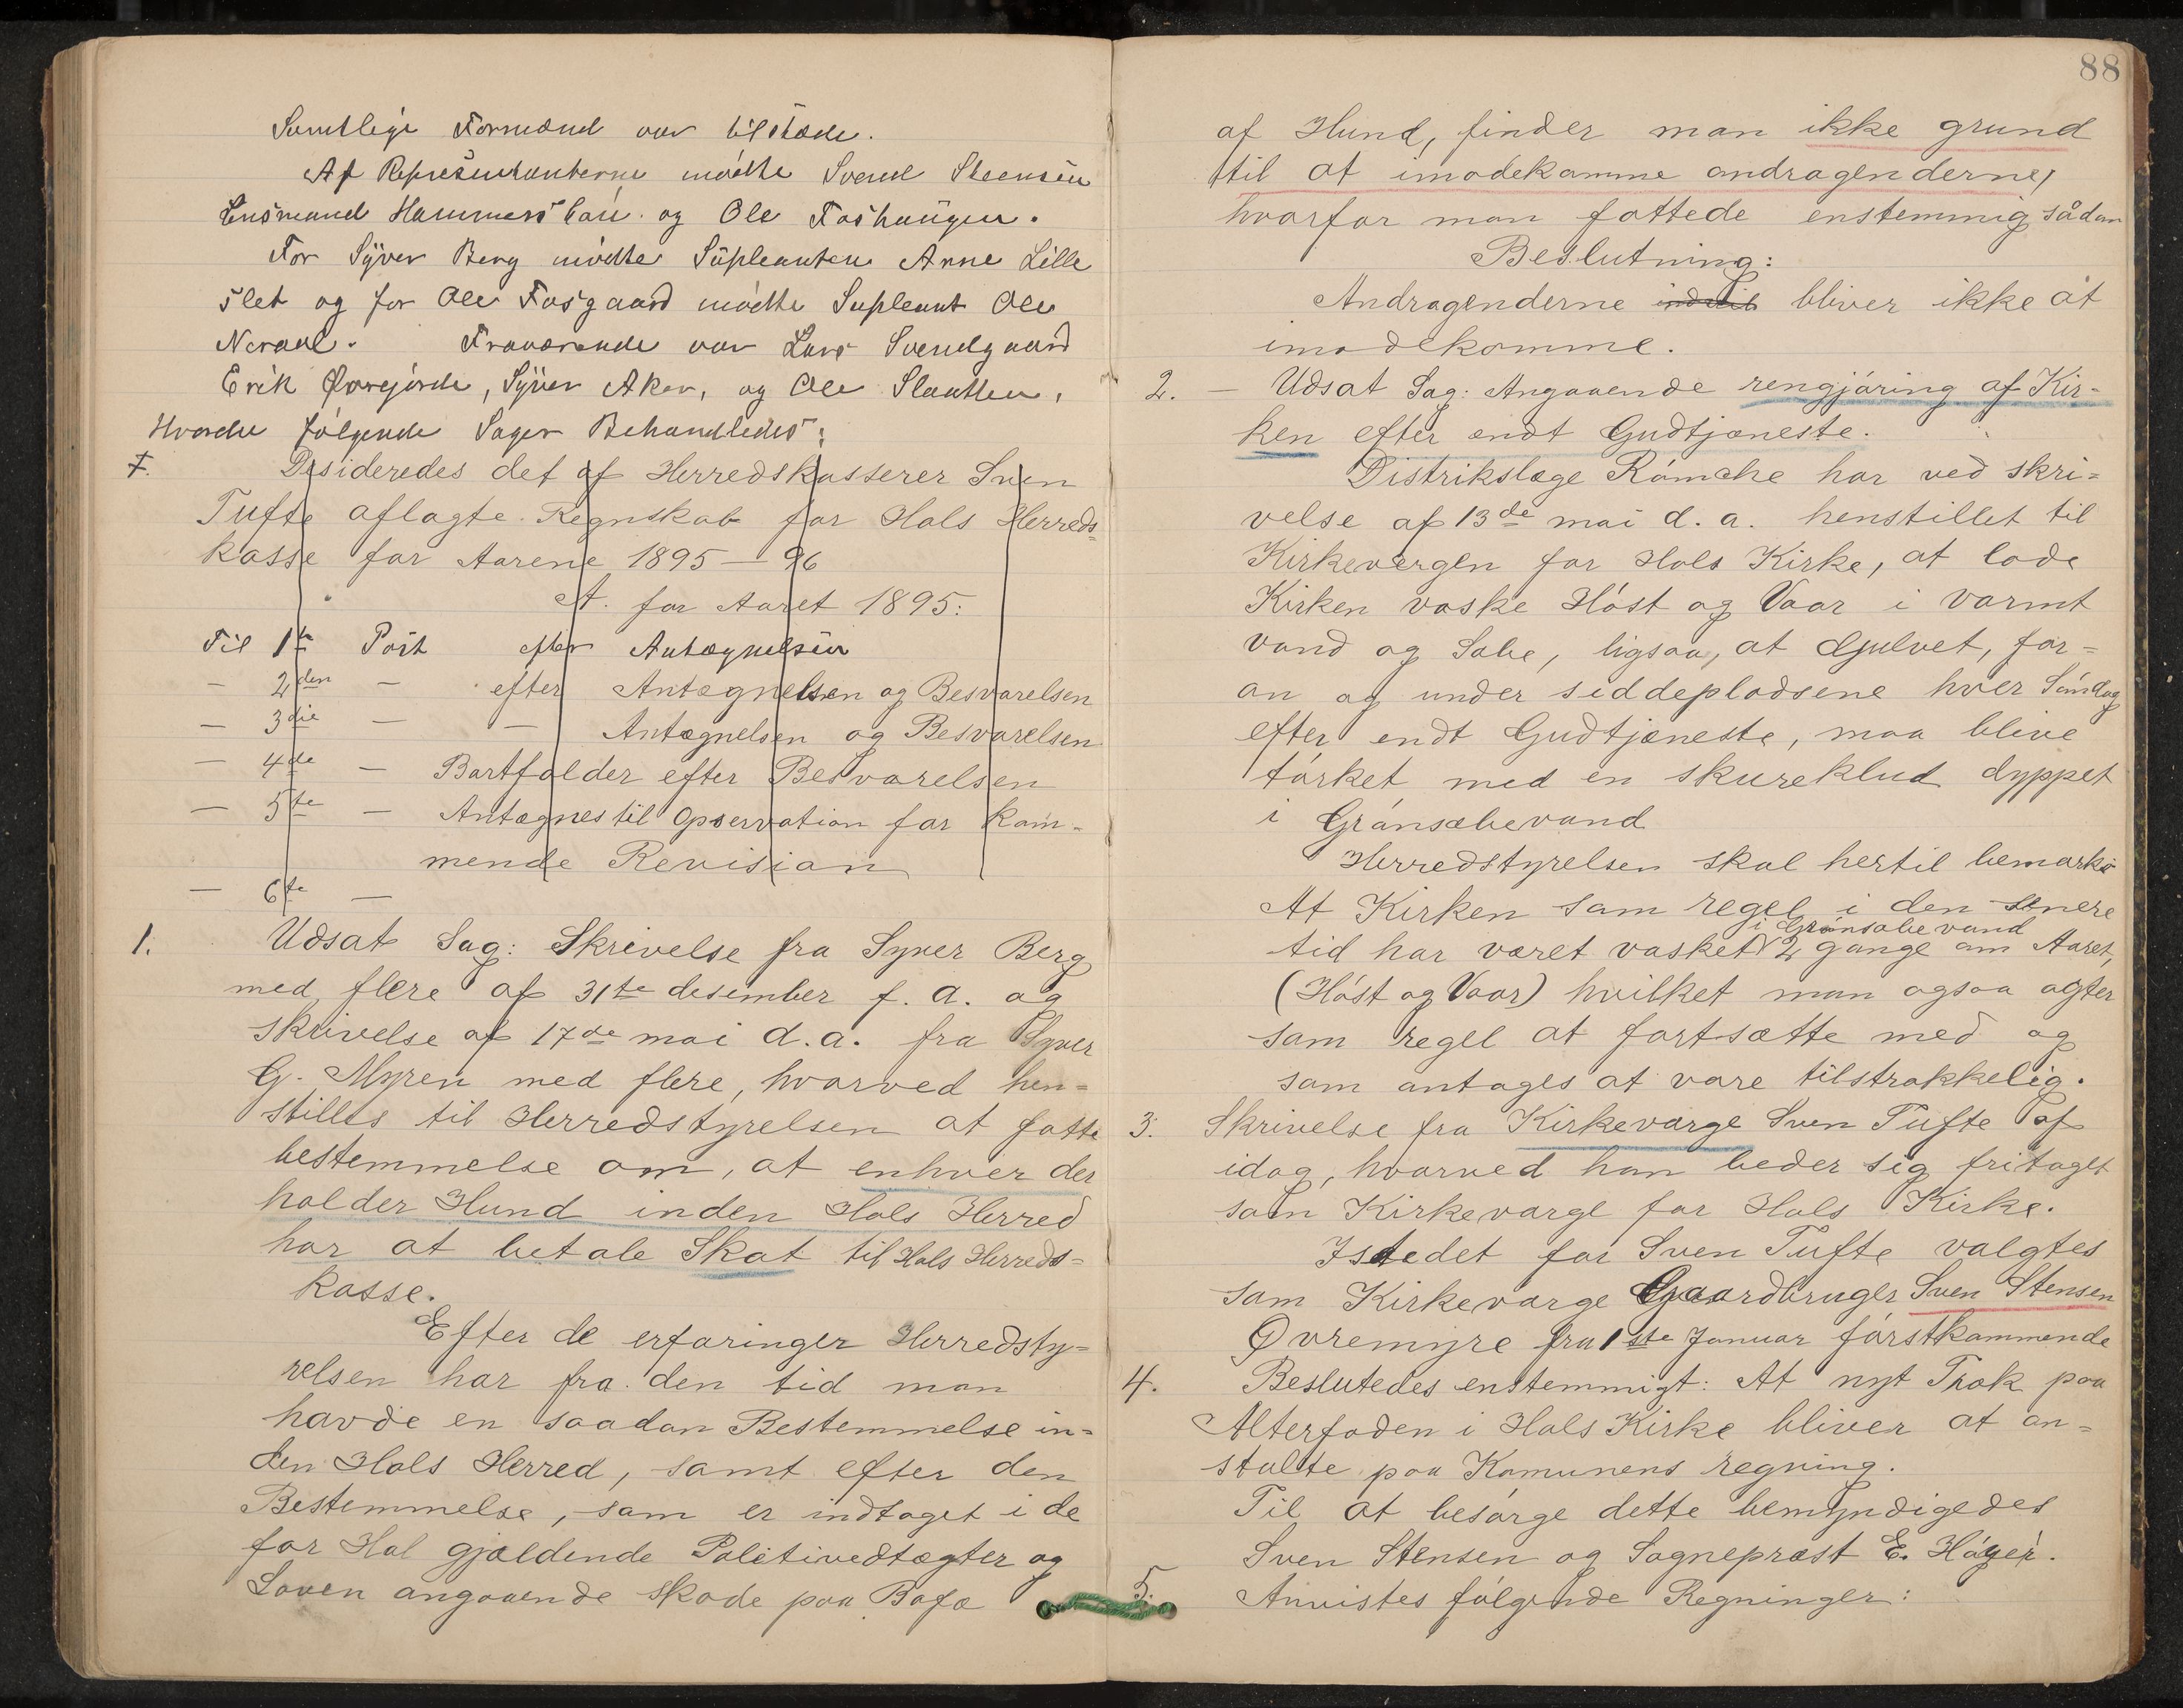 Samtlige Formænd var tilstæde.
Af Represæntanterne mødte Svend Steensen
Lensmand og Ole Foshaugen.
For Syver Berg mødte Supleanten Arne Lille
slet og for Ole Fosgaard mødte Supleant Ole
Neraal. Fraværende var Lars Svendgaard
Erik Øvrejorde, Syver Aker, og Ole Slaatten,
Hvorder følgende Sager Behandledes:
I. Desideredes det af Herredskasserer Sven
Tufte aflagte Regnskab for Hols Herreds-
kasse for Aarene 1895–96
A. for Aaret 1895:
Til 1te Post efter Antægnelsen
– 2den – efter Antegnelsen og Besvarelsen
– 3die – – Antegnelsen og Besvarelsen
– 4de – Bortfalder efter Besvarelsen
– 5te – Antægnes til Opservation for kom-
mende Revision
– 6te –
1. Udsat Sag: Skrivelse fra Syver Berg
med flere af 31te desember f. a. og
skrivelse af 17de mai d. a. fra Syver
G. Myren med flere, hvorved hen=
stilles til Herredstyrelsen at fatte
bestemmelse om, at enhver der
holder Hund inden Hols Herred
har at betale Skat til Hols Herreds=
kasse.
Efter de erfaringer Herredsty=
relsen har fra den tid man
havde en saadan Bestemmelse in=
den Hols Herred, samt efter den
Bestemmelse, som er indtaget i de
for Hol gjældende Politivedtægter og
Loven angaaende skade paa Bufæ
88
af Hund, finder man ikke grund
til at imødekomme andragenderne,
hvorfor man fattede enstemmig sådan
Beslutning:
Andragenderne bliver ikke at
imødekomme.
2. – Udsat Sag: Angaaende rengjøring af Kir-
ken efter endt Gudtjæneste.
Distrikslæge Rømcke har ved skri=
velse af 13de mai d. a. henstillet til
Kirkevergen for Hols Kirke, at lade
Kirken vaske Høst og Vaar i varmt
vand og Sabe, ligsaa, at Gjulvet, for=
an og under siddepladsene hver Søndag
efter endt Gudtjæneste, maa blive
tørket med en skureklud dyppet
i Grønsæbevand
Herredstyrelsen skal hertil bemærke
At Kirken som regel i den senere
tid har været vasket i Grønsabevand 2 gange om Aaret,
(Høst og Vaar) hvilket man ogsaa agter
som regel at fortsætte med og
som antages at være tilstrækkelig.
3. Skrivelse fra Kirkeværge Sven Tufte af
idag, hvorved han beder sig fritaget
som Kirkeværge for Hols Kirke.
Istedet for Sven Tufte valgtes
som Kirkeværge Gaardbruger Sven Stensen
Øvremyre fra 1ste Januar førstkommende
4. Beslutedes enstemmigt: At nyt Træk paa
Alterfoden i Hols Kirke bliver at an=
skaffe paa Komunens regning.
Til at besørge dette bemyndigedes
Sven Stensen og Sogneprest E. Høyer.
5. Anvistes følgende Regninger: